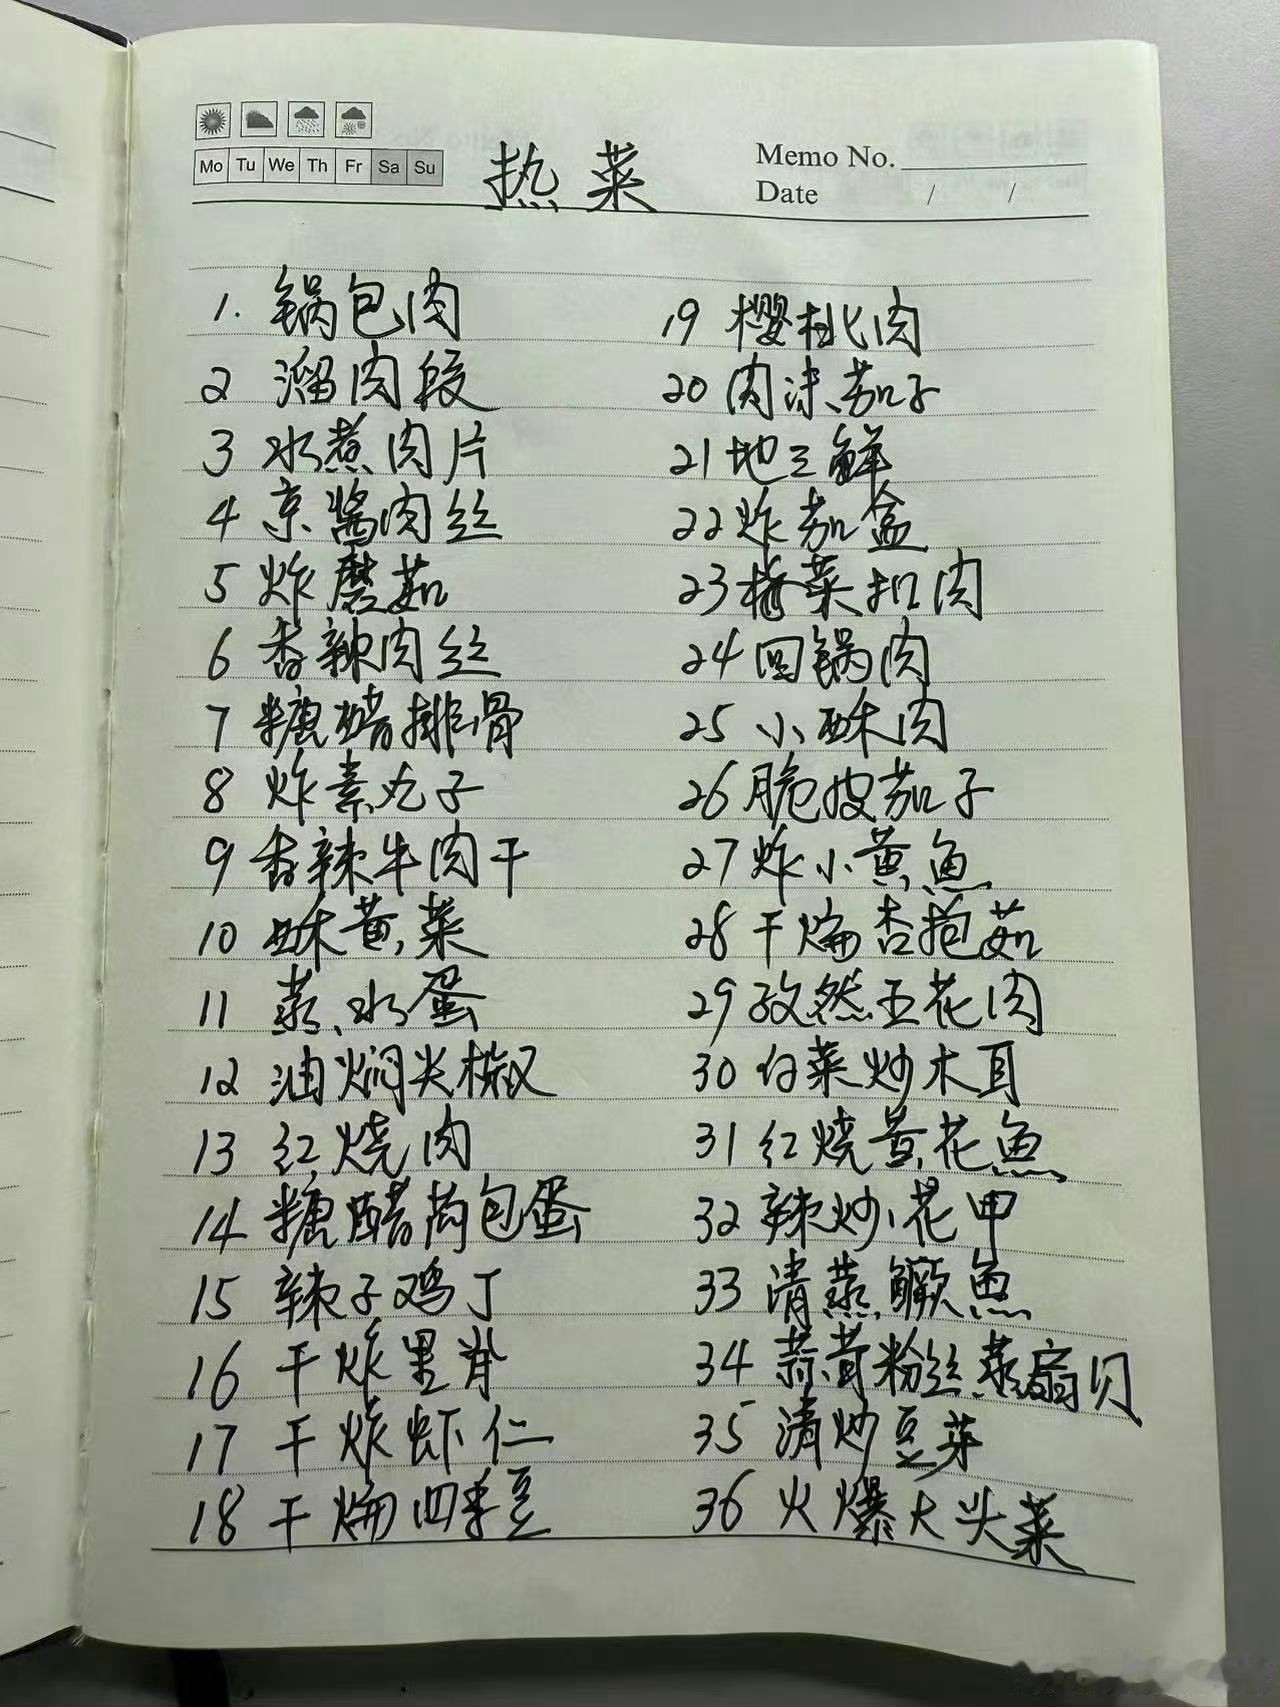 Mo Tu We Th Fr Sa Su
热菜
Memo No.
Date / /
1. 锅包肉
2 溜肉段
3 水煮肉片
4 京酱肉丝
5 炸磨菇
6 香辣肉丝
7 糖醋排骨
8 炸素丸子
9 香辣牛肉干
10 酥黄菜
11 蒸水蛋
12 油焖尖椒
13 红烧肉
14 糖醋荷包蛋
15 辣子鸡丁
16 干炸里脊
17 干炸虾仁
18 干煸四季豆
19 樱桃肉
20 肉沫茄子
21 地三鲜
22 炸茄盒
23 梅菜扣肉
24 回锅肉
25 小酥肉
26 脆皮茄子
27 炸小黄鱼
28 干煸杏抱菇
29 孜然五花肉
30 白菜炒木耳
31 红烧黄花鱼
32 辣炒花甲
33 清蒸鳜鱼
34 蒜蓉粉丝蒸扇贝
35 清炒豆芽
36 火爆大头菜